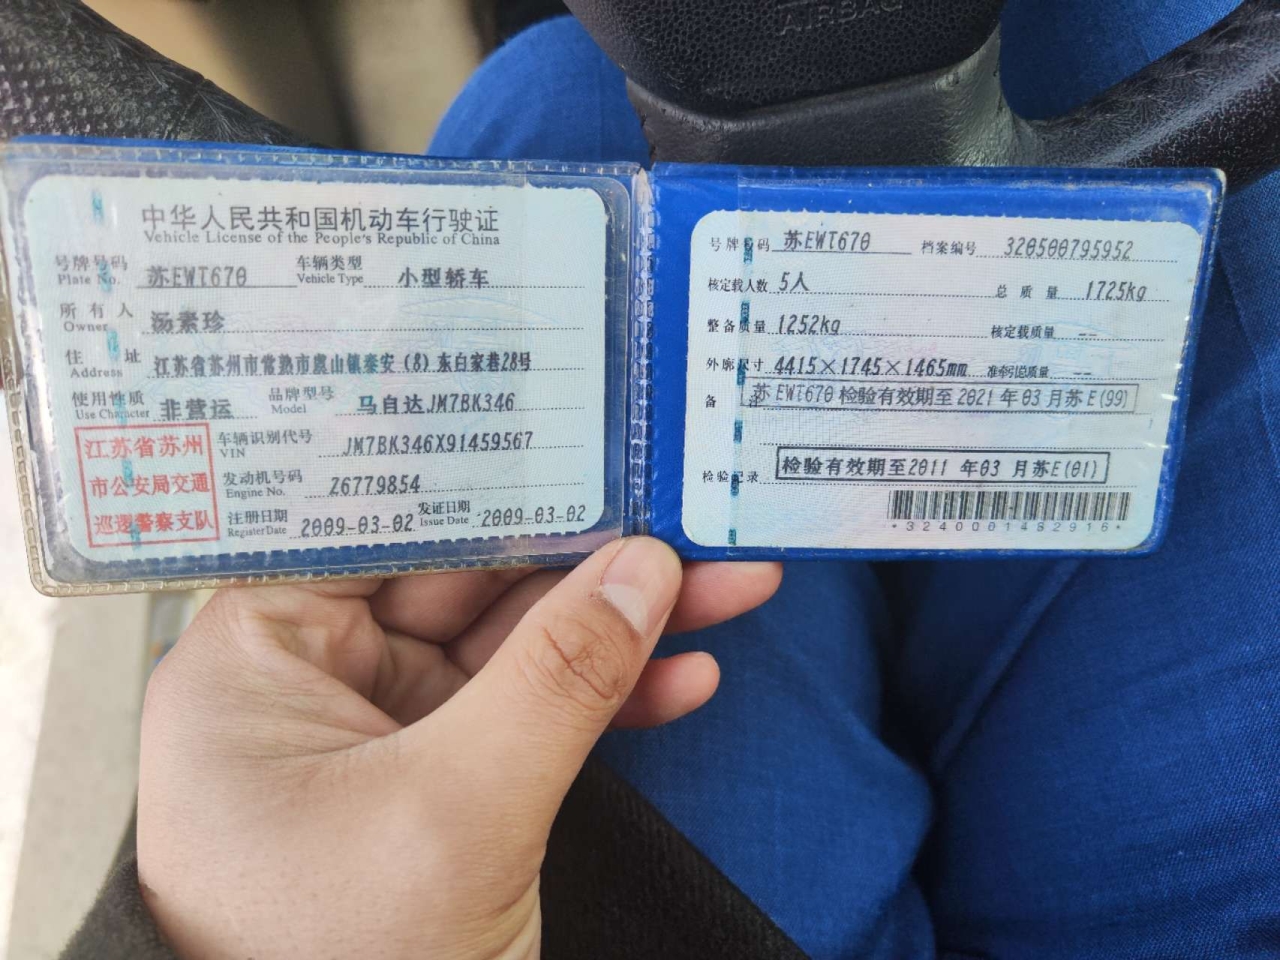 AIRBAG
中华人民共和国机动车行驶证
Vehicle License of the People's Republic of China
号牌号码 苏EWT670 车辆类型 小型轿车
Plate No. Vehicle Type
所有人 汤素珍
Owner
住址 江苏省苏州市常熟市虞山镇泰安（8）东白家巷28号
Address
使用性质 非营运 品牌型号 马自达JM7BK346
Use Character Model
江苏省苏州
市公安局交通
巡逻警察支队
车辆识别代号 JM7BK346X91459567
VIN
发动机号码 Z6779854
Engine No.
注册日期 2009-03-02 发证日期 2009-03-02
Register Date Issue Date
号牌号码 苏EWT670 档案编号 320500795952
核定载人数 5人 总质量 1725kg
整备质量 1252kg 核定载质量 --
外廓尺寸 4415×1745×1465mm 准牵引总质量 --
备注 苏EWT670检验有效期至2021年03月苏E(99)
检验记录 检验有效期至2011 年03 月苏E(01)
*3240001482916*